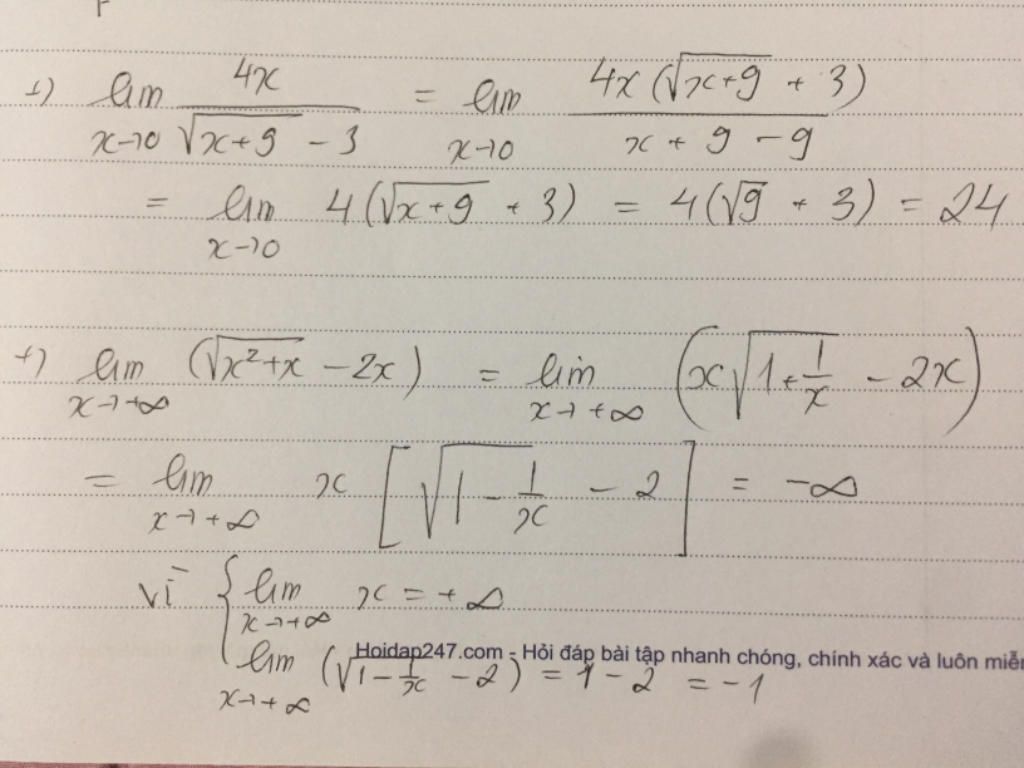 +) lim x→0 4x / (√(x+9) - 3) = lim x→0 4x(√(x+9) + 3) / (x + 9 - 9)
= lim x→0 4(√(x+9) + 3) = 4(√9 + 3) = 24
+) lim x→+∞ (√(x²+x) - 2x) = lim x→+∞ (x√(1 + 1/x) - 2x)
= lim x→+∞ x [√(1 - 1/x) - 2] = -∞
vì { lim x→+∞ x = +∞
Hoidap247.com - Hỏi đáp bài tập nhanh chóng, chính xác và luôn miễn
lim x→+∞ (√(1 - 1/x) - 2) = 1 - 2 = -1